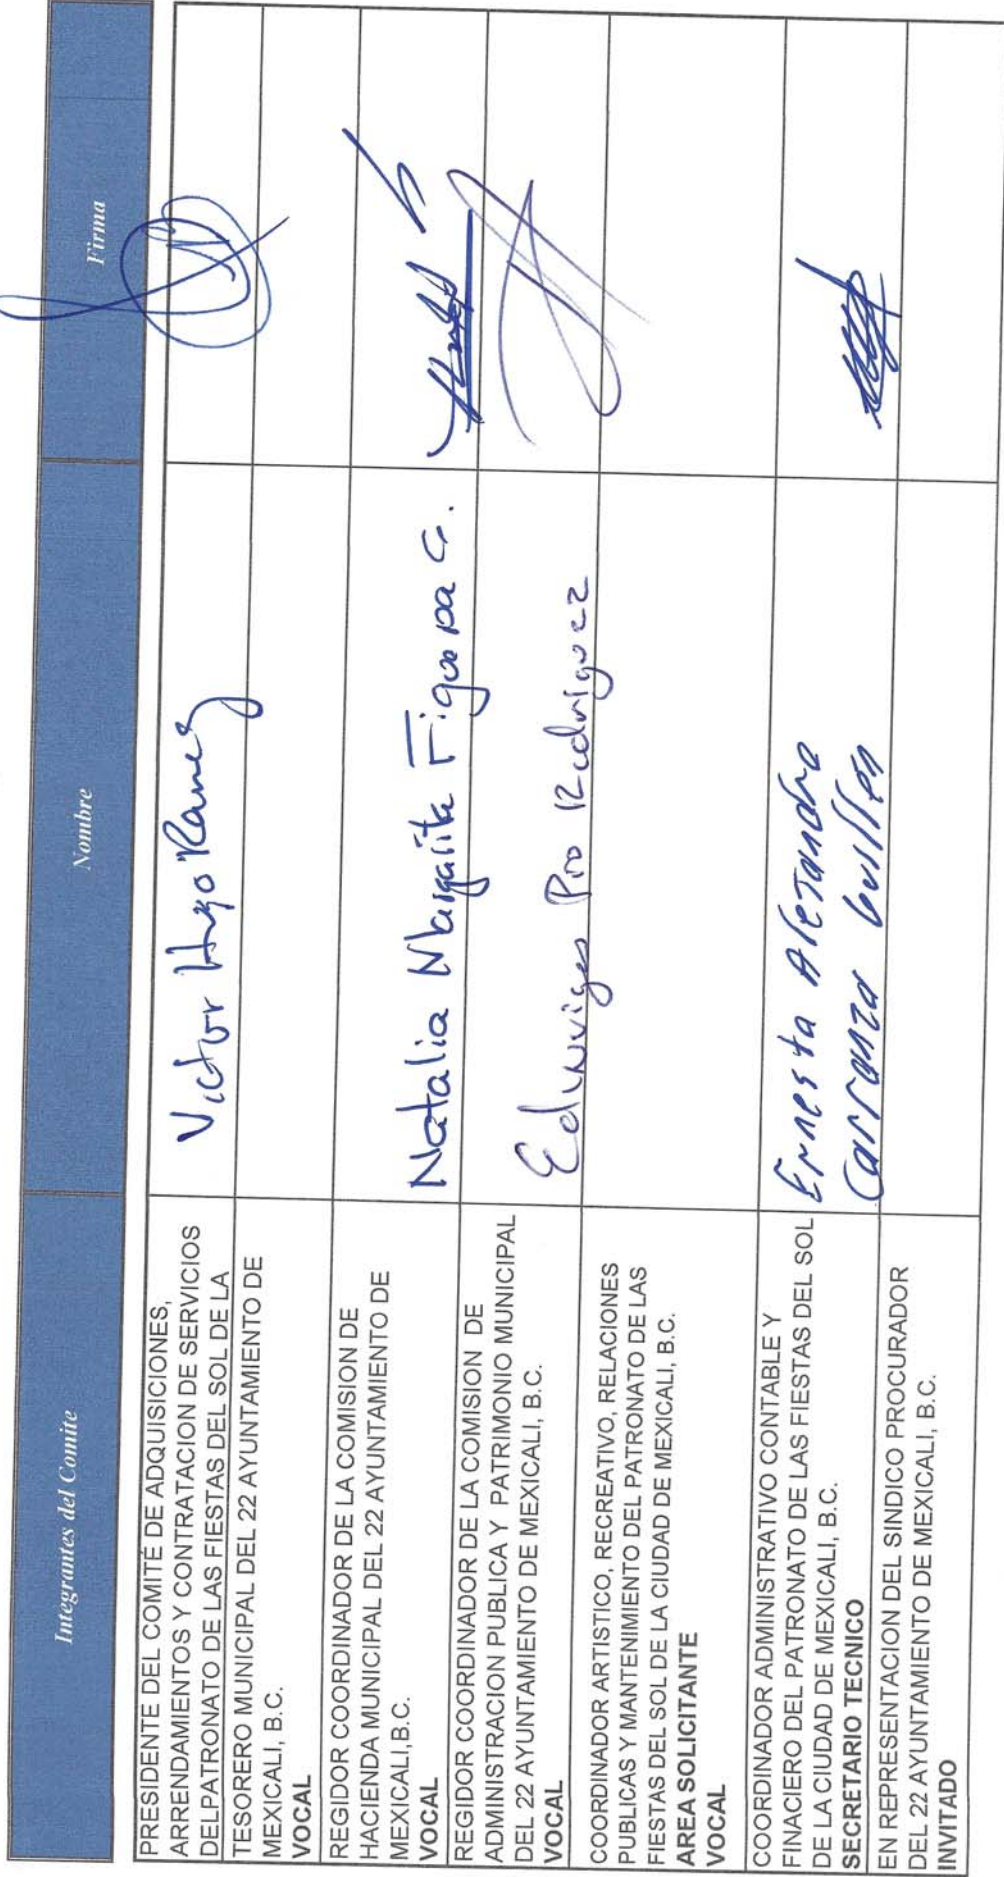 Integrantes del Comite
Nombre
Firma
PRESIDENTE DEL COMITÉ DE ADQUISICIONES,
ARRENDAMIENTOS Y CONTRATACION DE SERVICIOS
DELPATRONATO DE LAS FIESTAS DEL SOL DE LA
Victor Hugo
TESORERO MUNICIPAL DEL 22 AYUNTAMIENTO DE
MEXICALI, B.C.
VOCAL
REGIDOR COORDINADOR DE LA COMISION DE
HACIENDA MUNICIPAL DEL 22 AYUNTAMIENTO DE
MEXICALI,B.C.
VOCAL
Natalia Margarita Figueroa G.
REGIDOR COORDINADOR DE LA COMISION DE
ADMINISTRACION PUBLICA Y PATRIMONIO MUNICIPAL
DEL 22 AYUNTAMIENTO DE MEXICALI, B.C.
VOCAL
Edwviges Pro Rodriguez
COORDINADOR ARTISTICO, RECREATIVO, RELACIONES
PUBLICAS Y MANTENIMIENTO DEL PATRONATO DE LAS
FIESTAS DEL SOL DE LA CIUDAD DE MEXICALI, B.C.
AREA SOLICITANTE
VOCAL
COORDINADOR ADMINISTRATIVO CONTABLE Y
FINACIERO DEL PATRONATO DE LAS FIESTAS DEL SOL
DE LA CIUDAD DE MEXICALI, B.C.
SECRETARIO TECNICO
Ernesto Alejandro
Carranza Guillen
EN REPRESENTACION DEL SINDICO PROCURADOR
DEL 22 AYUNTAMIENTO DE MEXICALI, B.C.
INVITADO